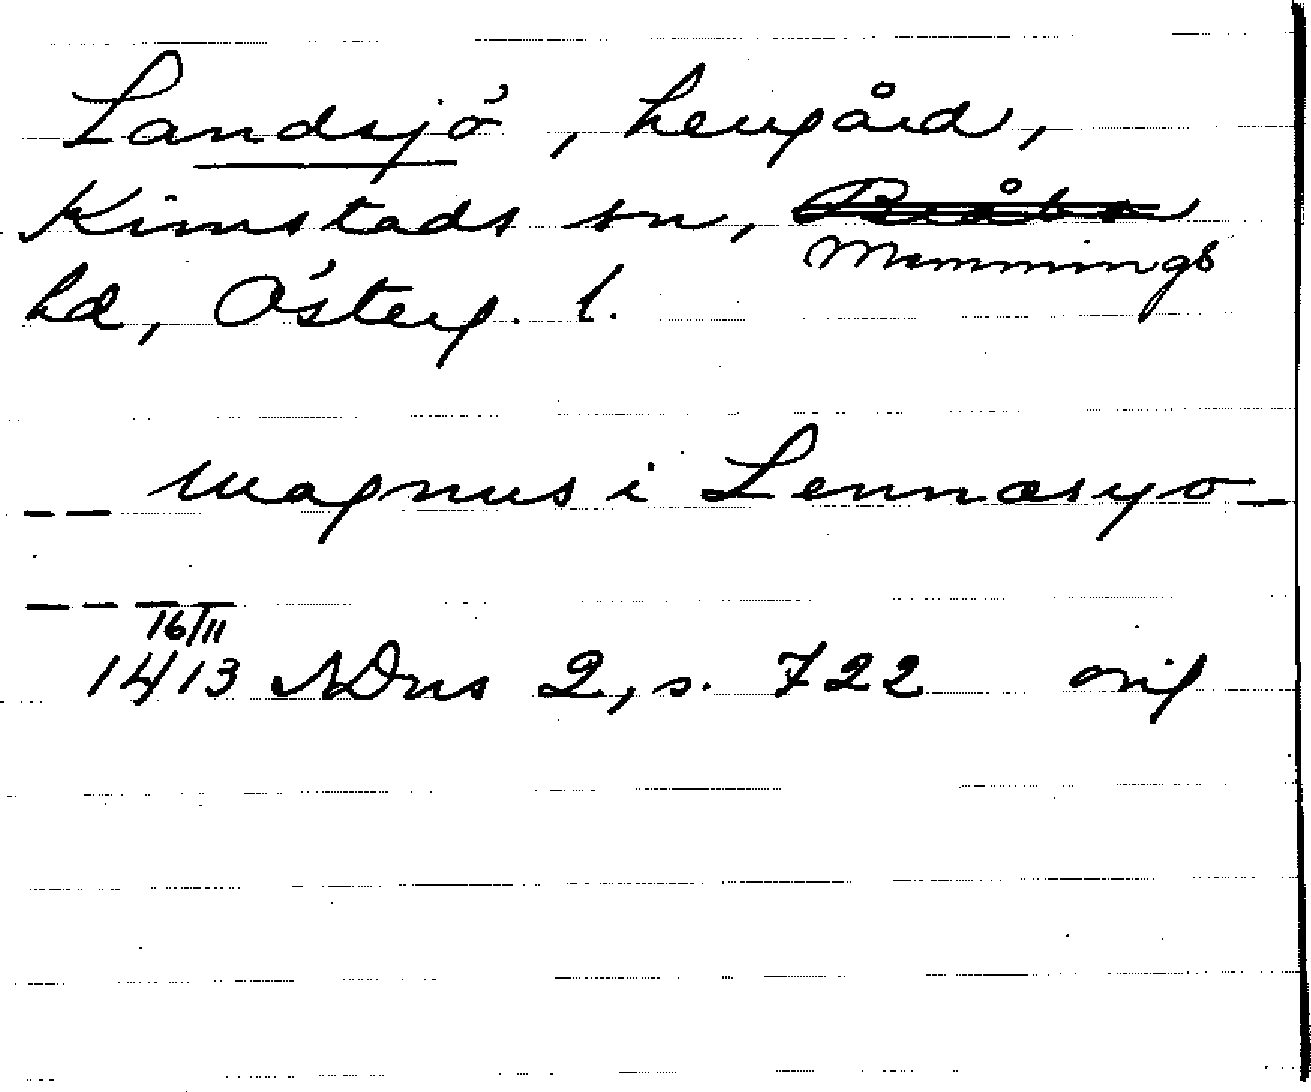 Landsjö, hergård,
Kimstads sn, Bråbo
Memmings
hd, Österg. l.
-- Magnus i Lennæsyo -
---
16/11
1413 SDns 2, s. 722 orig